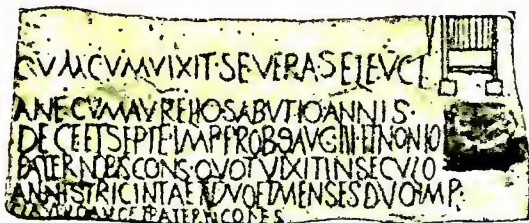 CVMCVMVIXIT·SEVERASELEVCI
ANE·CVMAVRELIOSABVTIOANNIS·
DECEETSEPTE·IMPPROBOAVGIIIETNONIO
PATERNOBISCONS·QVOTVIXITINSECVLO
ANNISTRICINTAETDVOETMENSESDVO·IMP·